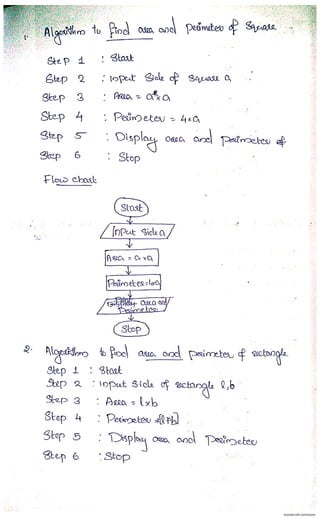 1. Algorithm to find area and perimeter of Square
Step 1 : Start
Step 2 : Input Side of Square a
Step 3 : Area = a*a
Step 4 : Perimeter = 4*a
Step 5 : Display area and perimeter of
Step 6 : Stop
Flow chart
Start
Input Side a
Area = a*a
Perimeter = 4*a
Display area and
Perimeter
Stop
2. Algorithm to find area and perimeter of rectangle
Step 1 : Start
Step 2 : Input Side of rectangle l,b
Step 3 : Area = l*b
Step 4 : Perimeter
Step 5 : Display area and Perimeter
Step 6 : Stop